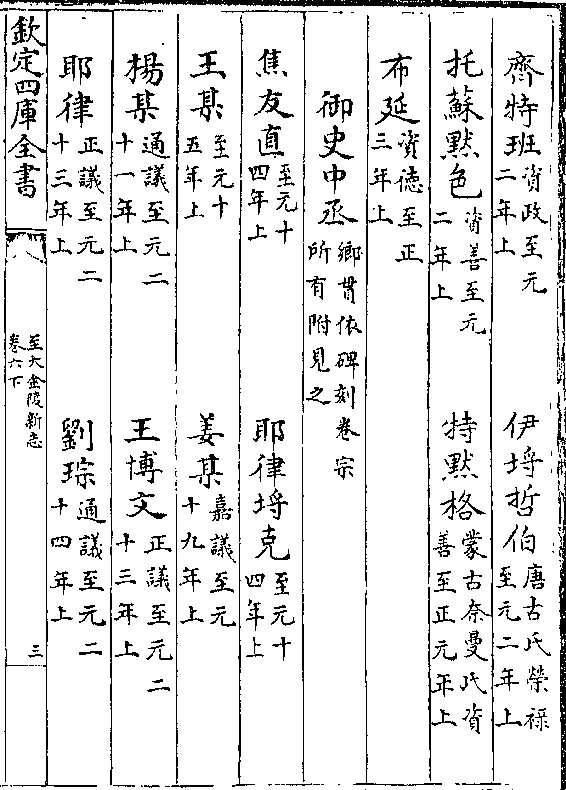 齊特班資政至元二年上　伊埒哲伯唐古氏榮祿至元二年上
托蘇默色資善至元二年上　特默格蒙古奈曼氏資善至正元年上
布延資德至正三年上
御史中丞鄉貫依碑刻卷宗所有附見之
焦友直至元十四年上　耶律埒克至元十四年上
王某至元十五年上　姜某嘉議至元十九年上
楊某通議至元二十一年上　王博文正議至元二十三年上
耶律正議至元二十三年上　劉琮通議至元二十四年上
欽定四庫全書　至大金陵新志卷六下　三